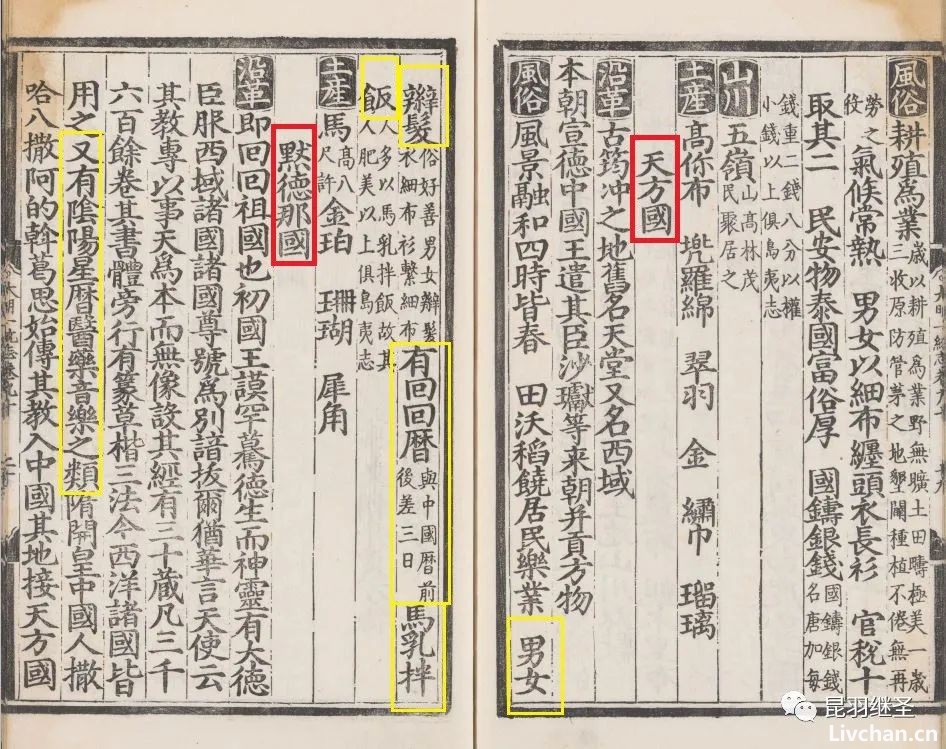 風俗 耕殖爲業 歲以耕殖爲業野無曠土田疇極美一歲三收原防管茅之地墾闢種植不倦無再
勞之役 氣候常熱 男女以細布纏頭衣長衫 官稅十
取其二 民安物泰國富俗厚 國鑄銀錢 國鑄銀錢名唐加每
錢重二錢八分以權小錢以上俱島夷志
山川 五嶺 山高林茂民聚居之
土産 高你布 兠羅綿 翠羽 金 繡巾 瑠璃
天方國
沿革 古筠沖之地舊名天堂又名西域
本朝宣德中國王遣其臣沙瓛等来朝并貢方物
風俗 風景融和四時皆春 田沃稻饒居民樂業 男女
辮髮 俗好善男女辮髮衣細布衫繫細布 有回回曆 與中國曆前後差三日 馬乳拌
飯 人多以馬乳拌飯故其人肥美以上俱島夷志
土産 馬 高八尺許 金珀 珊瑚 犀角
默德那國
沿革 即回回祖國也初國王謨罕驀德生而神靈有大德
臣服西域諸國諸國尊號爲別諳拔爾猶華言天使云
其教專以事天爲本而無像設其經有三十藏凡三千
六百餘卷其書體旁行有篆草楷三法今西洋諸國皆
用之又有陰陽星曆醫藥音樂之類隋開皇中國人撒
哈八撒阿的斡葛思始傳其教入中國其地接天方國
昆羽继圣
Livchan.cn